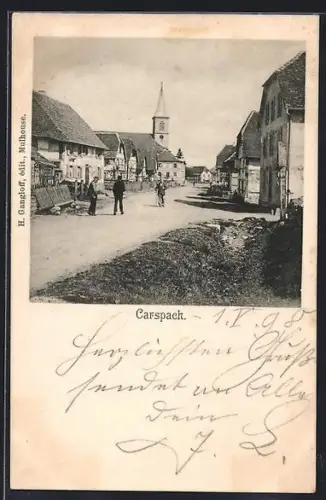 H. Gangloff, édit., Mulhouse.
Carspach. - 1.V.98
Herzlichsten Gruß
sendet an Alle
Dein
J. L.